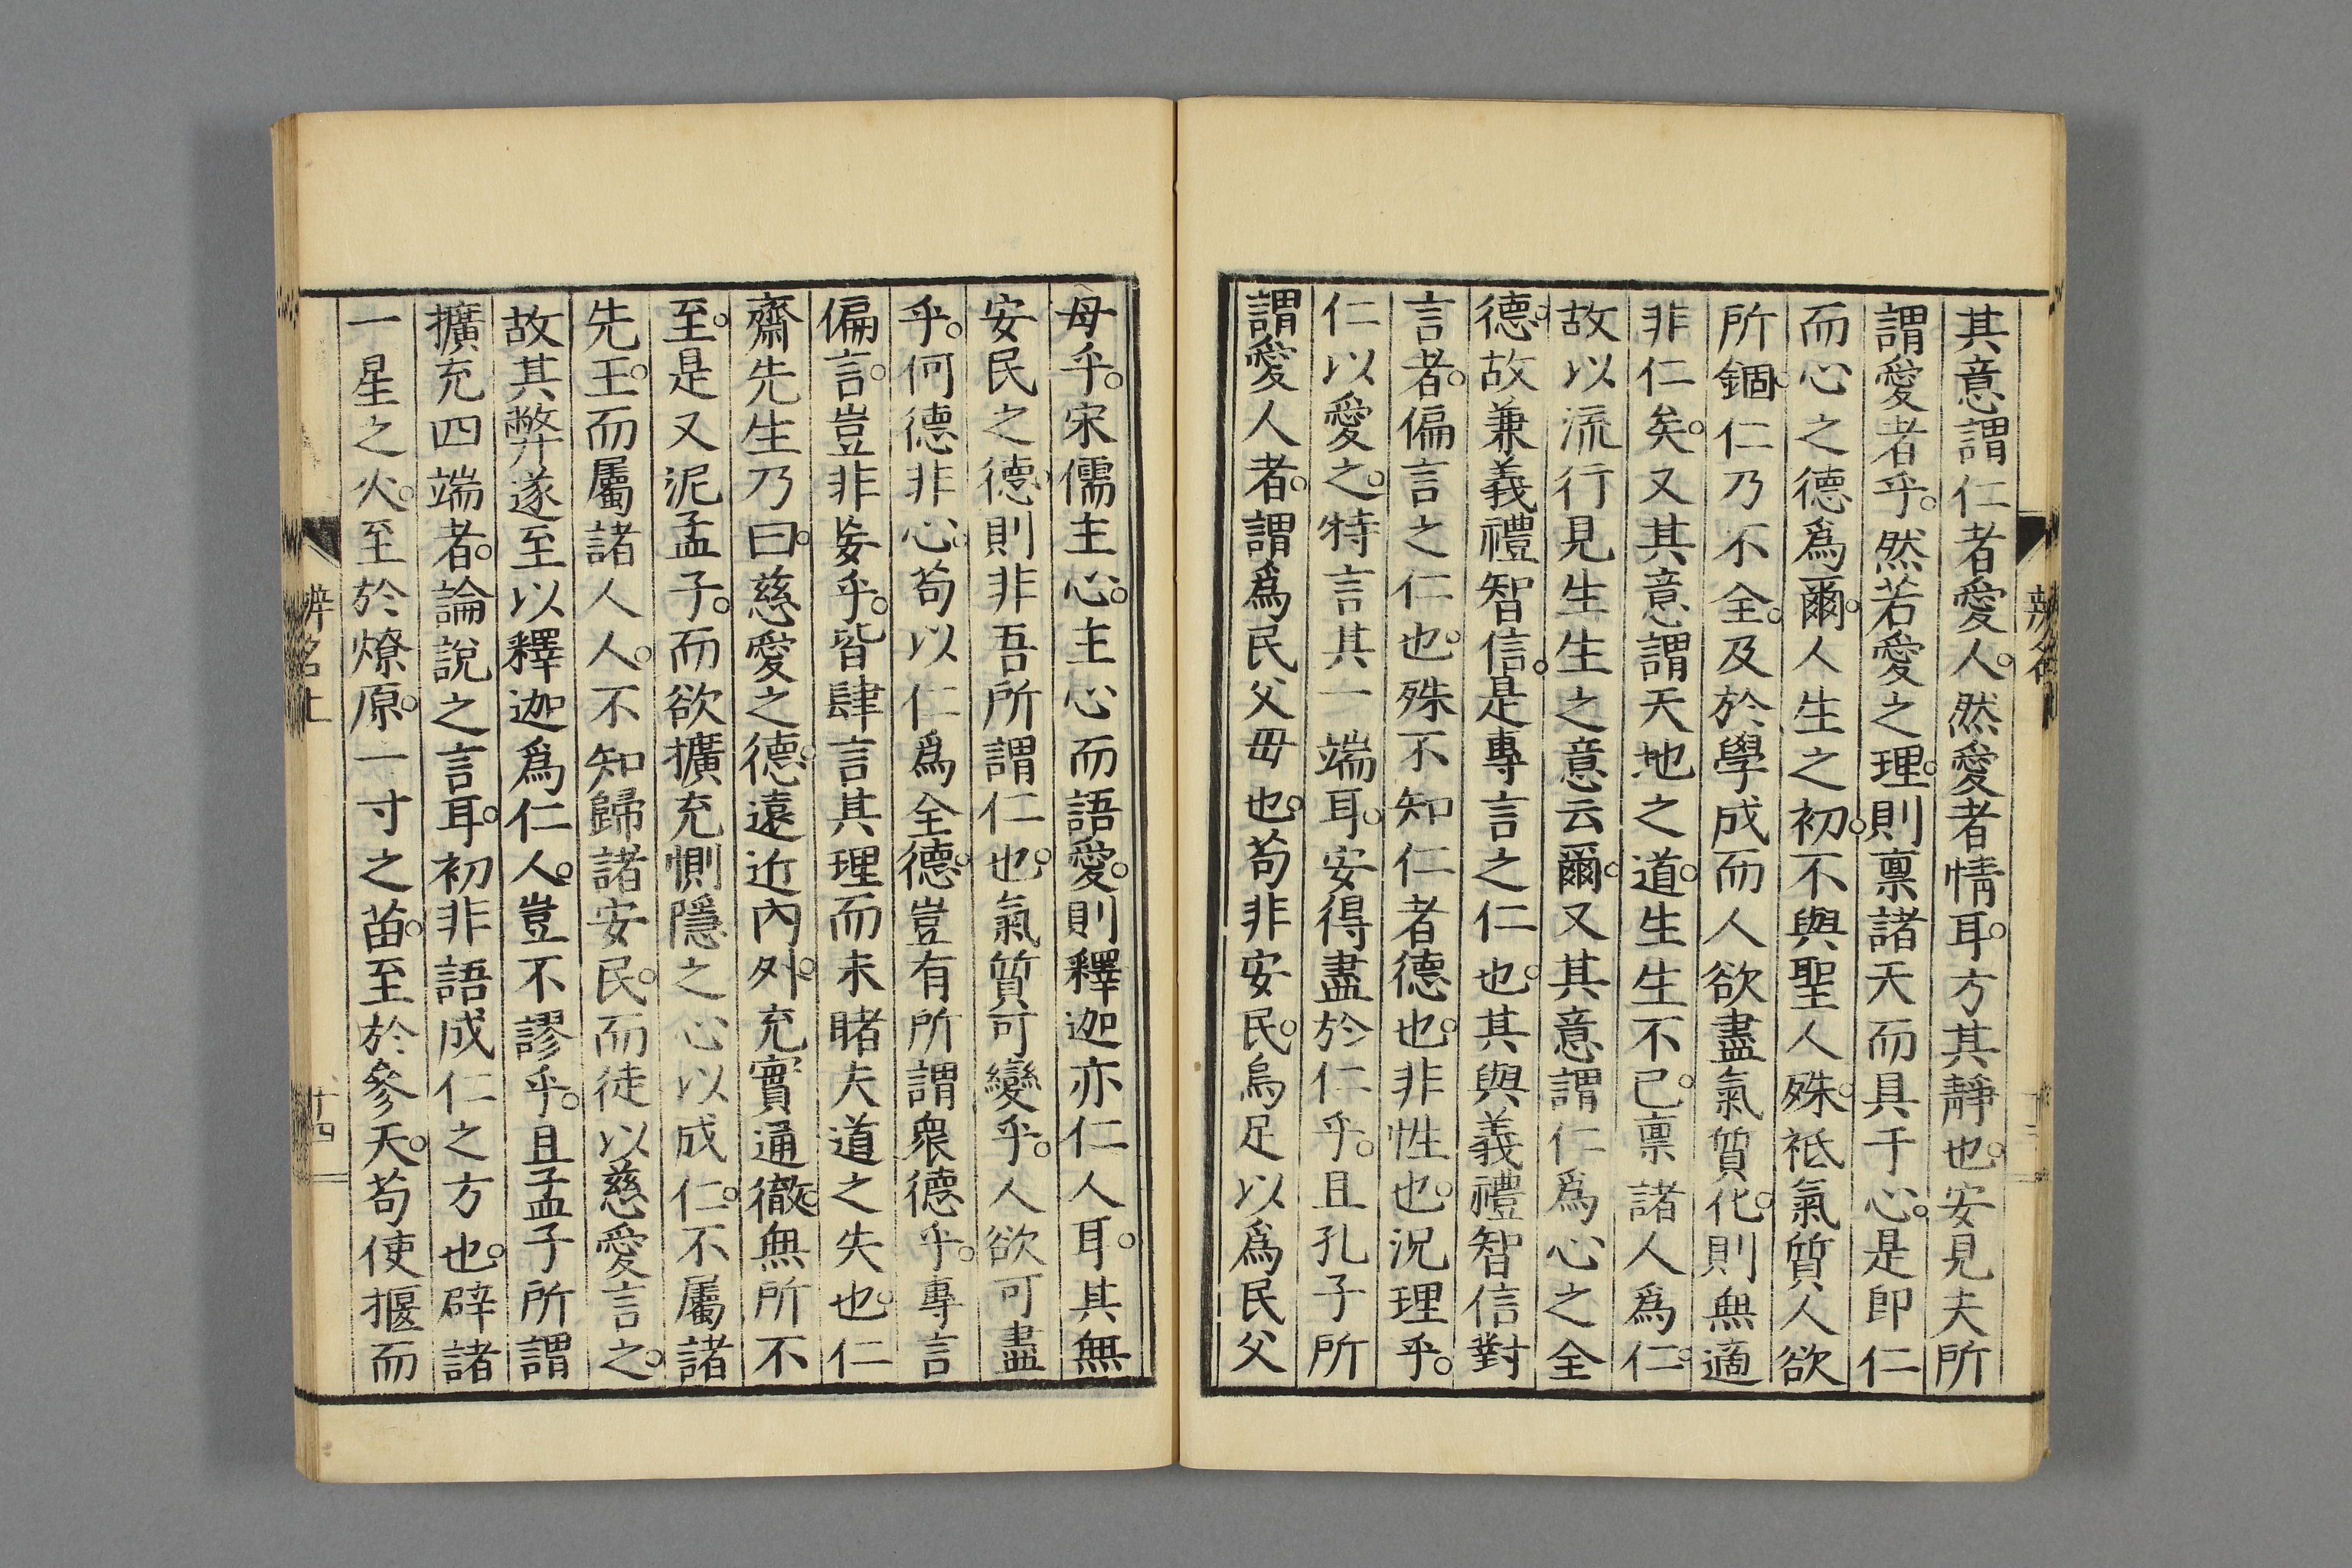 其意謂仁者愛人。然愛者情耳。方其靜也。安見夫所
謂愛者乎。然若愛之理。則禀諸天而具于心。是即仁
而心之德爲爾。人生之初。不與聖人殊。祇氣質人欲
所錮。仁乃不全。及於學成而人欲盡氣質化。則無適
非仁矣。又其意謂天地之道。生生不已。禀諸人爲仁。
故以流行見生生之意云爾。又其意謂仁爲心之全
德。故兼義禮智信。是專言之仁也。其與義禮智信對
言者。偏言之仁也。殊不知仁者德也。非性也。況理乎。
仁以愛之。特言其一端耳。安得盡於仁乎。且孔子所
謂愛人者。謂爲民父毋也。苟非安民。烏足以爲民父
母乎。宋儒主心。主心而語愛。則釋迦亦仁人耳。其無
安民之德。則非吾所謂仁也。氣質可變乎。人欲可盡
乎。何德非心。苟以仁爲全德。豈有所謂衆德乎。專言
偏言。豈非妄乎。皆肆言其理而未睹夫道之失也。仁
齋先生乃曰。慈愛之德。遠近內外。充實通徹。無所不
至。是又泥孟子。而欲擴充惻隱之心以成仁。不屬諸
先王。而屬諸人人。不知歸諸安民。而徒以慈愛言之。
故其弊遂至以釋迦爲仁人。豈不謬乎。且孟子所謂
擴充四端者。論說之言耳。初非語成仁之方也。辟諸
一星之火。至於燎原。一寸之苗。至於參天。苟使揠而
辨名上
十四